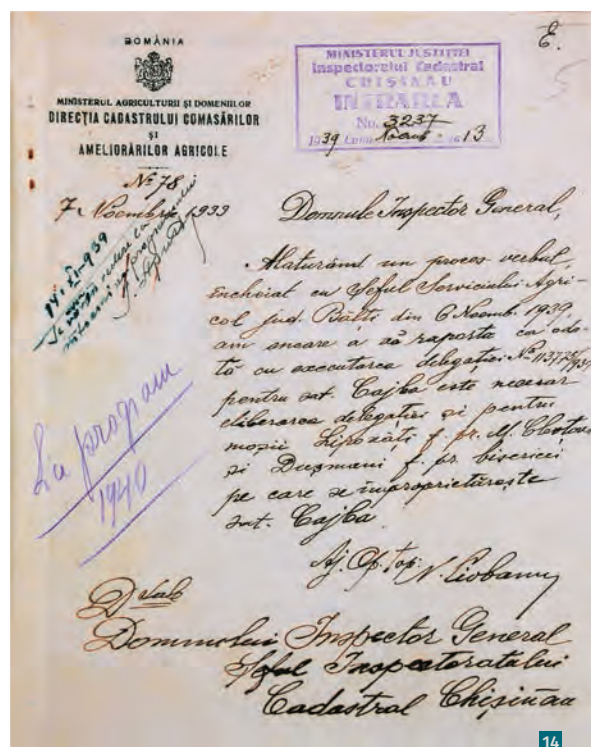 E.
ROMÂNIA
MINISTERUL AGRICULTURII ȘI DOMENIILOR
DIRECȚIA CADASTRULUI COMASĂRILOR
ȘI
AMELIORĂRILOR AGRICOLE
MINISTERUL JUSTIȚIEI
Inspectoratul Cadastral
CHIȘINAU
INTRAREA
No. 3237
1939 Luna Noemb 13
No 78
7 Noembrie 1939
14-XI-939
Se va în vedere la
programului
La program
1940
Domnule Inspector General,
Alaturând un proces verbal,
încheiat cu Șeful Serviciului Agri-
col jud. Bălți din 6 Noemb. 1939
am onoare a vă raporta că oda-
tă cu executarea delegației No
pentru sat. Cajba este necesar
eliberarea delegației și pentru
moșii f. pr. M.
și Dușmani f. pr. bisericei
pe care se improprietărește
sat. Cajba
Aj. Op. Top. N. Ciobanu
D sale
Domnului Inspector General
Șeful Inspectoratului
Cadastral Chișinău
14